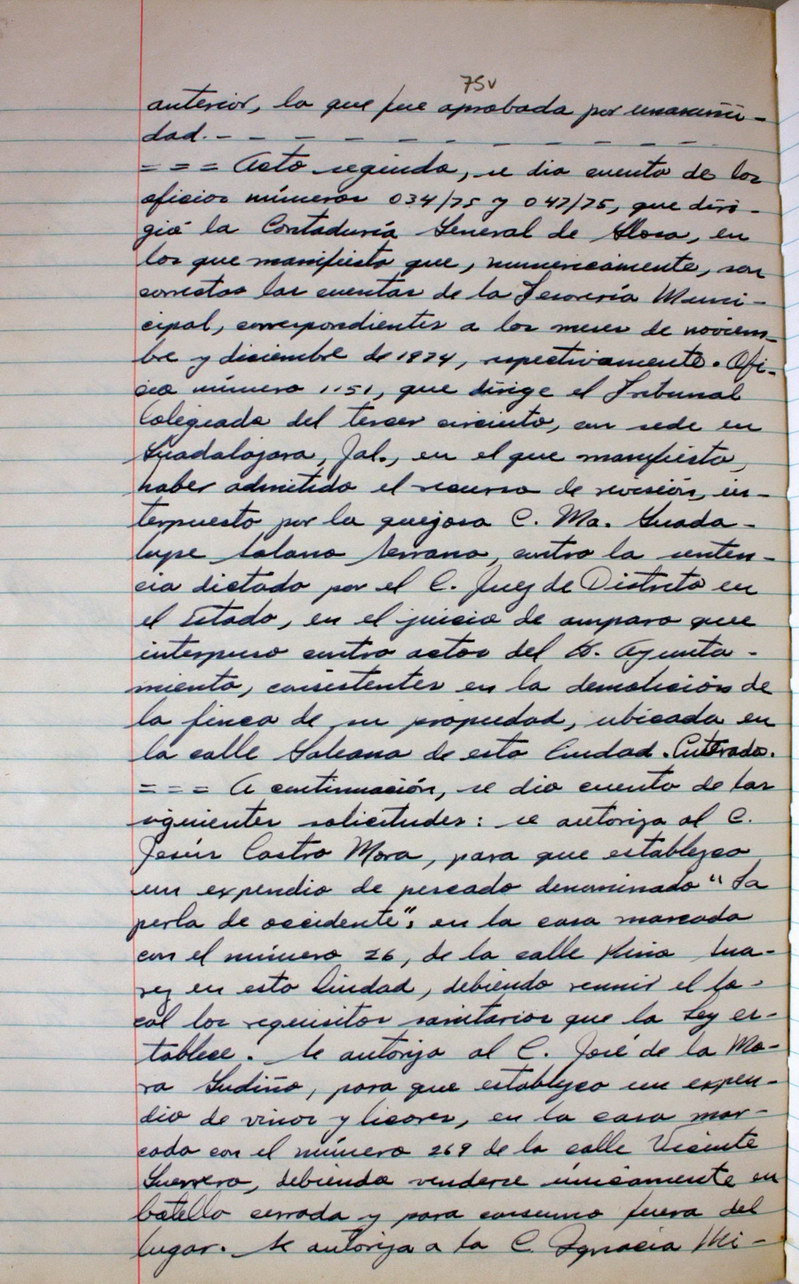 75v
anterior, la que fue aprobada por unanimi-
dad. - - - - - - - - - - - -
= = = Acto seguido, se dio cuenta de los
oficios números 034/75 y 047/75, que diri-
gió la Contaduría General de Glosa, en
los que manifiesta que, numéricamente, son
correctas las cuentas de la Tesorería Munici-
cipal, correspondientes a los meses de noviem-
bre y diciembre de 1974, respectivamente. Ofi-
cio número 1151, que dirige el Tribunal
Colegiado del tercer circuito, con sede en
Guadalajara, Jal., en el que manifiesta,
haber admitido el recurso de revisión, in-
terpuesto por la quejosa C. Ma. Guada-
lupe Solano Serrano, contra la senten-
cia dictada por el C. Juez de Distrito en
el Estado, en el juicio de amparo que
interpuso contra actos del H. Ayunta-
miento, consistentes en la demolición de
la finca de su propiedad, ubicada en
la calle Galeana de esta Ciudad. Enterados.
= = = A continuación, se dio cuenta de las
siguientes solicitudes: se autoriza al C.
Jesús Castro Mora, para que establezca
un expendio de pescado denominado "La
perla de occidente", en la casa marcada
con el número 26, de la calle Nina
en esta Ciudad, debiendo reunir el lo-
cal los requisitos sanitarios que la Ley es-
tablece. Se autoriza al C. José de la Mo-
ra Gudiño, para que establezca un expen-
dio de vinos y licores, en la casa mar-
cada con el número 269 de la calle Vicente
Guerrero, debiendo venderse únicamente en
botella cerrada y para consumo fuera del
lugar. Se autoriza a la C. Ignacia Mi-